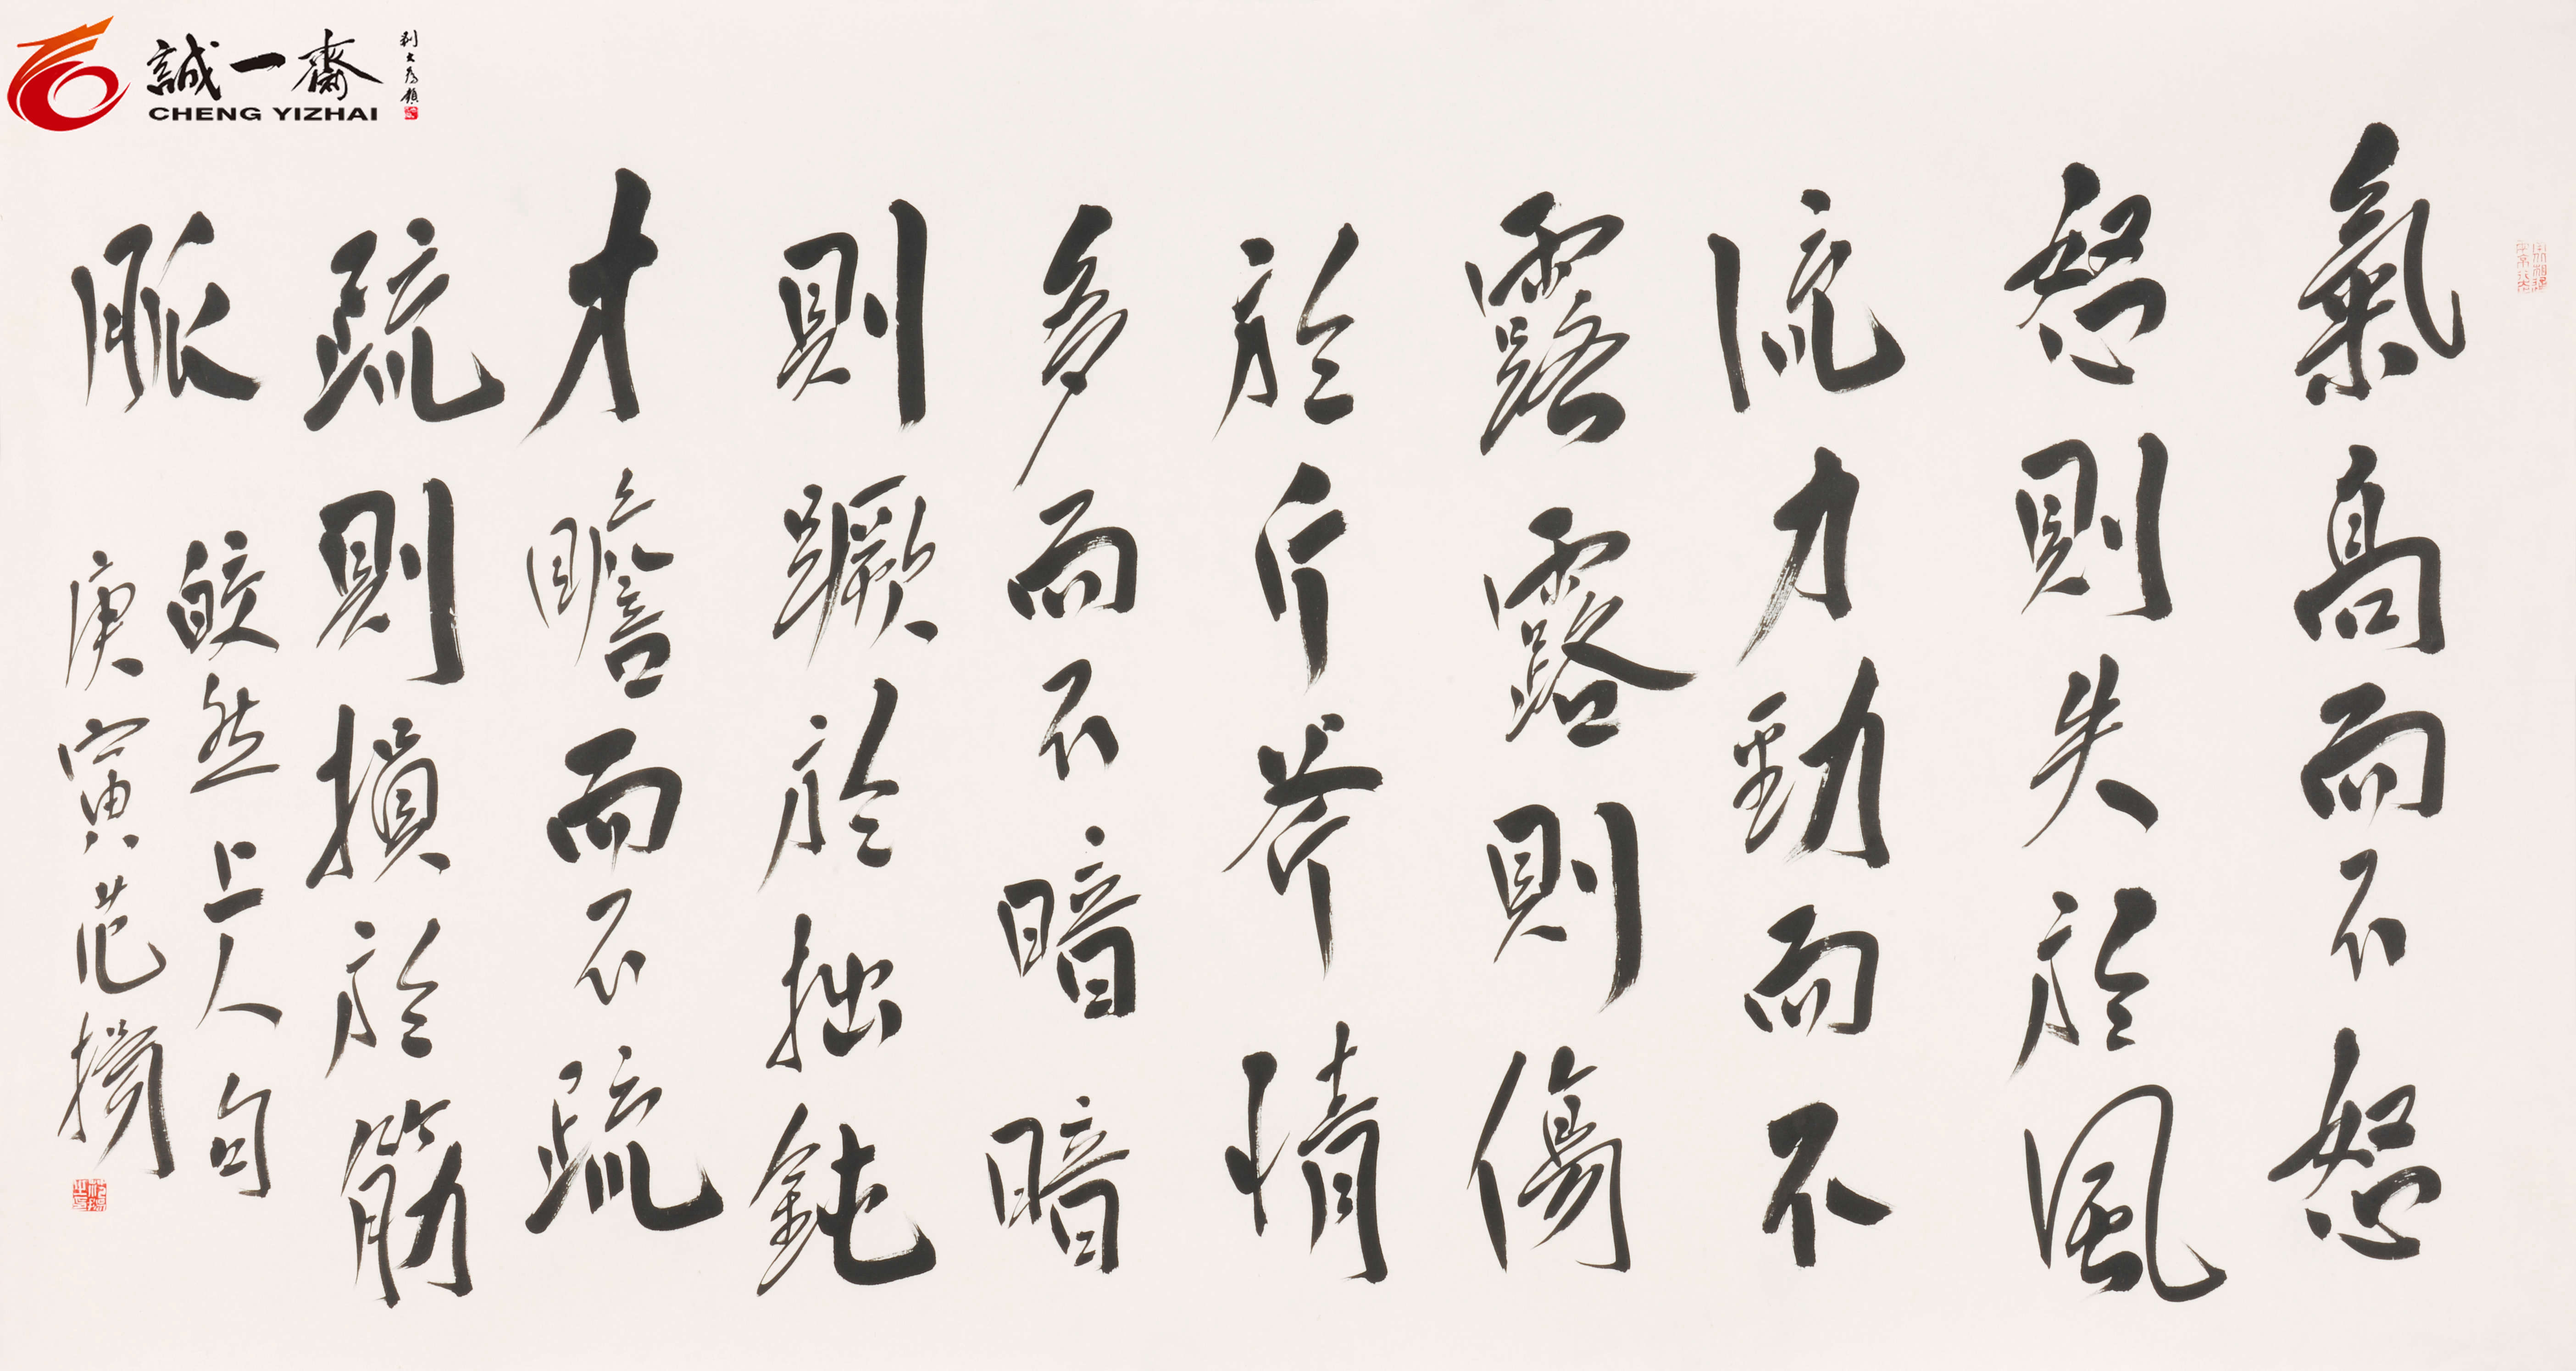 氣高而不怒
怒則失於風
流力勁而不
露露則傷
於斤斧情
多而不暗暗
則蹶於拙鈍
才贍而不疏
疏則損於筋
脈
皎然上人句
庚寅范撝
誠一齋
CHENG YIZHAI